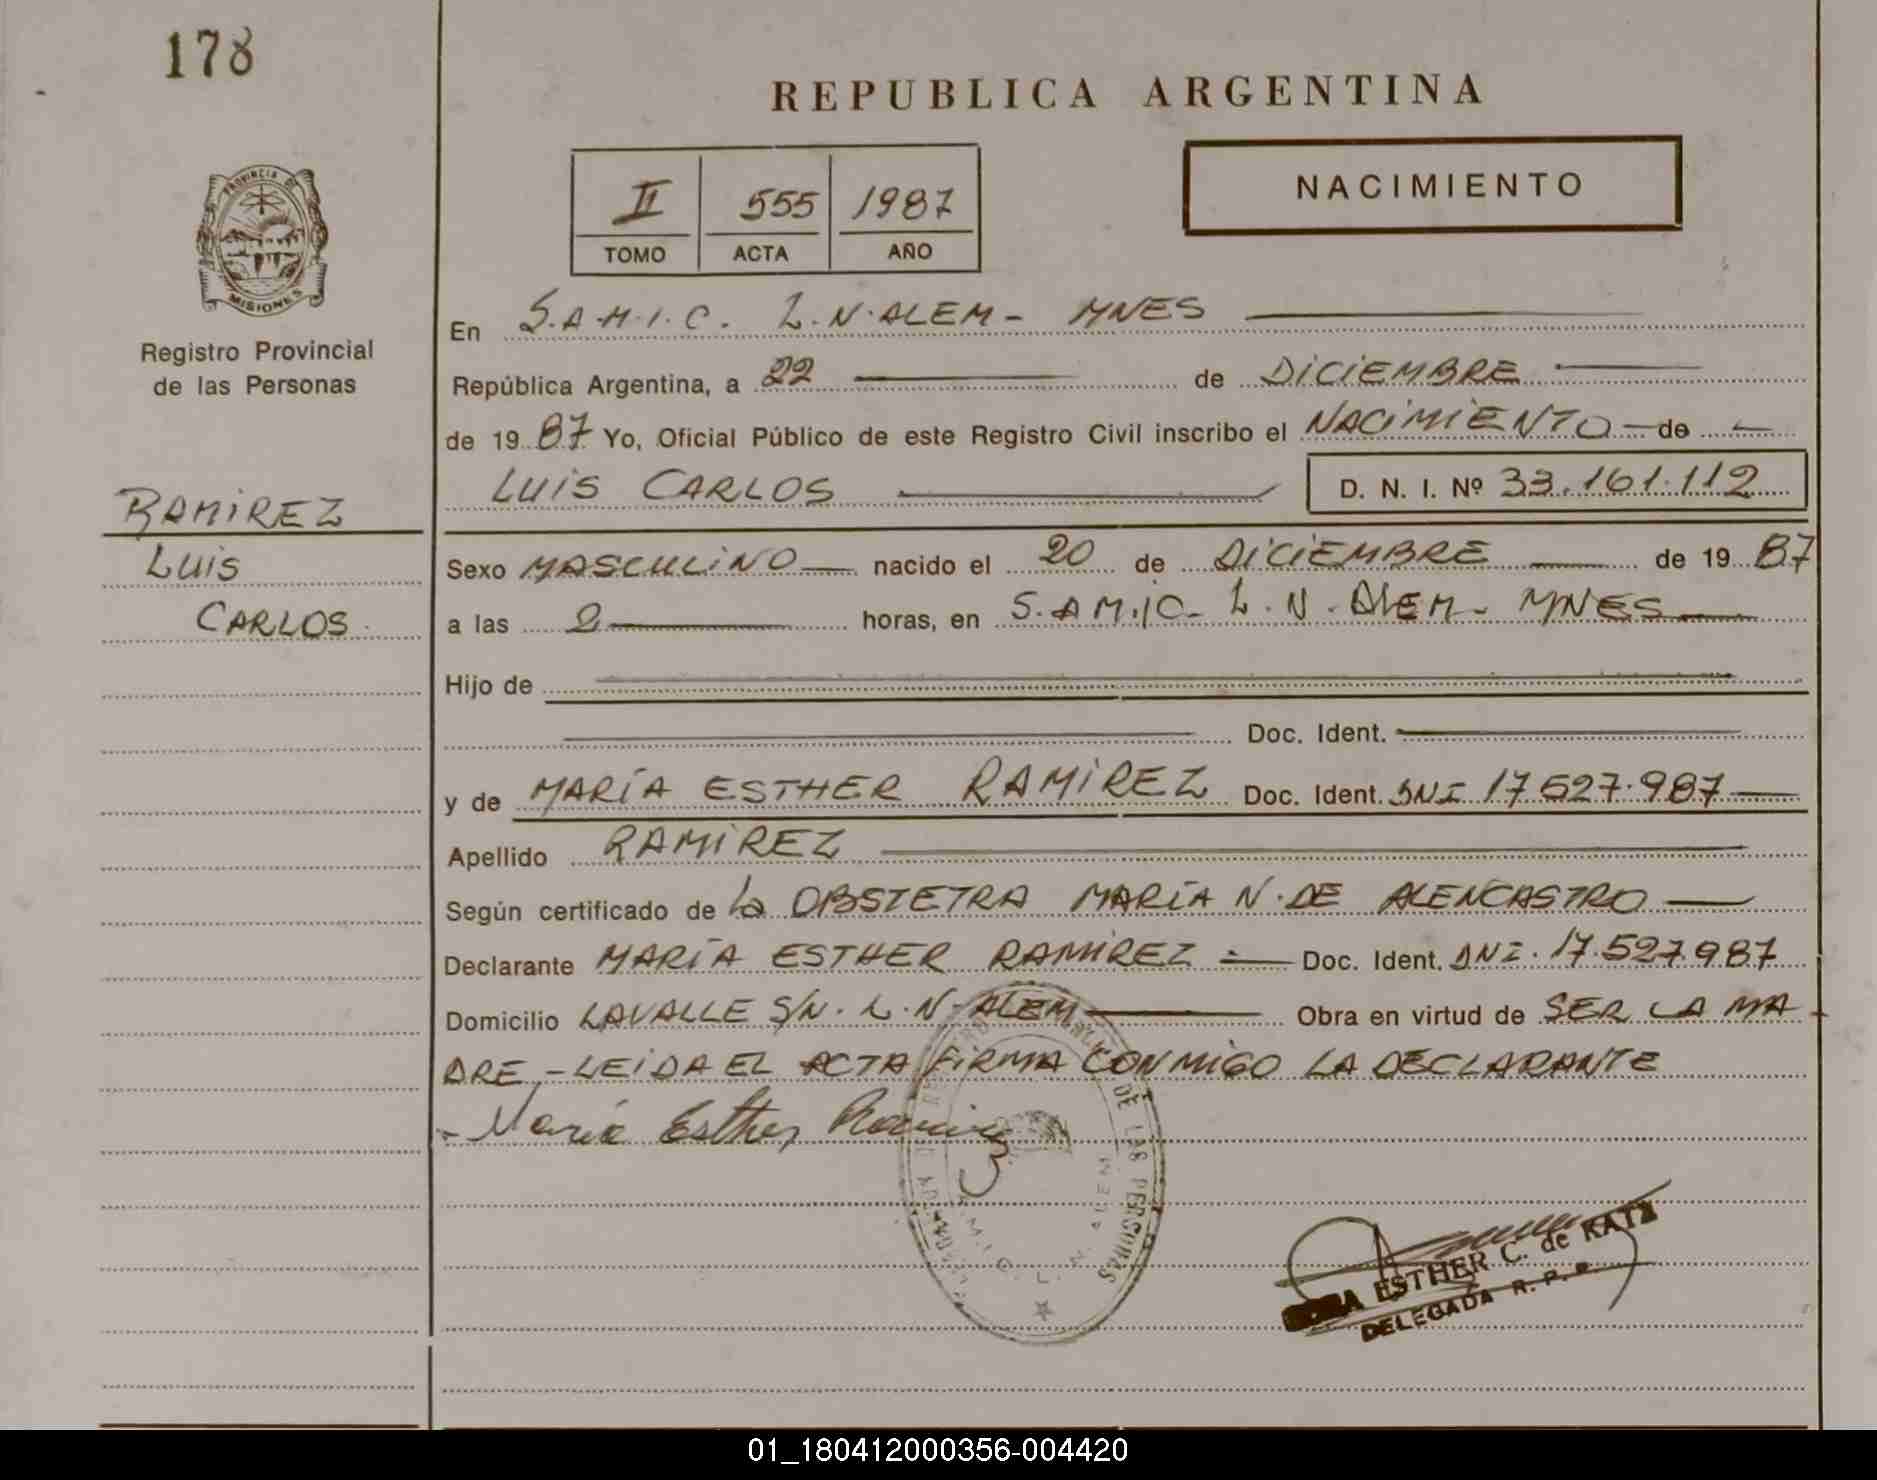 178
REPUBLICA ARGENTINA
PROVINCIA DE
MISIONES
Registro Provincial
de las Personas
II 555 1987
TOMO ACTA AÑO
NACIMIENTO
En S.A.M.I.C. L.N.ALEM- MNES
República Argentina, a 22 de DICIEMBRE
de 19 87 Yo, Oficial Público de este Registro Civil inscribo el NACIMIENTO de
LUIS CARLOS
D. N. I. Nº 33.161.112
RAMIREZ
LUIS
CARLOS
Sexo MASCULINO nacido el 20 de DICIEMBRE de 19 87
a las 2 horas, en S.A.M.IC- L.N.ALEM- MNES
Hijo de
Doc. Ident.
y de MARÍA ESTHER RAMIREZ Doc. Ident. DNI 17.527.987
Apellido RAMIREZ
Según certificado de La OBSTETRA MARÍA N. DE ALENCASTRO
Declarante MARÍA ESTHER RAMIREZ Doc. Ident. DNI. 17.527.987
Domicilio LAVALLE S/N. L.N-ALEM Obra en virtud de SER LA MA
DRE,-LEIDA EL ACTA FIRMA CONMIGO LA DECLARANTE
María Esther Ramirez
DE LAS PERSONAS
L. N. ALEM
ESTHER C. de KATZ
DELEGADA R. P. P.
01_180412000356-004420